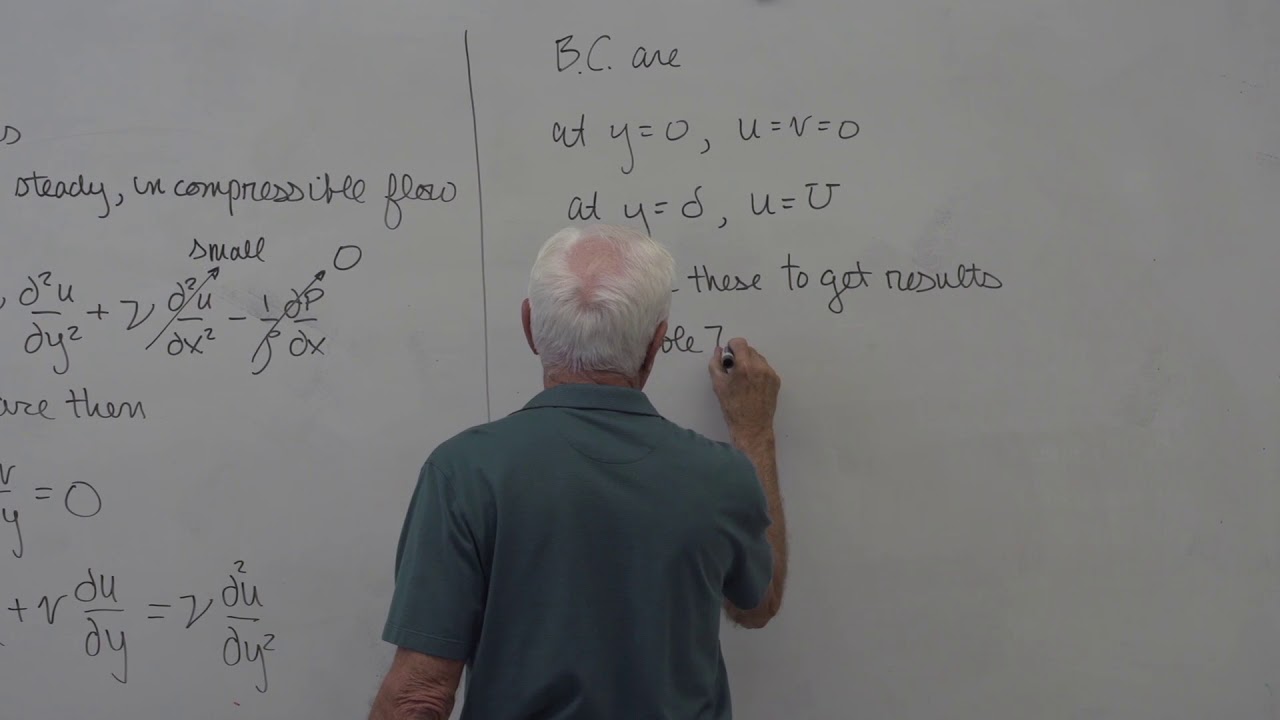 steady, incompressible flow
small 0
∂²u/∂y² + ν ∂²u/∂x² - 1/ρ ∂P/∂x
are then
= 0
+ v ∂u/∂y = ν ∂²u/∂y²
B.C. are
at y = 0, u = v = 0
at y = δ, u = U
these to get results
7